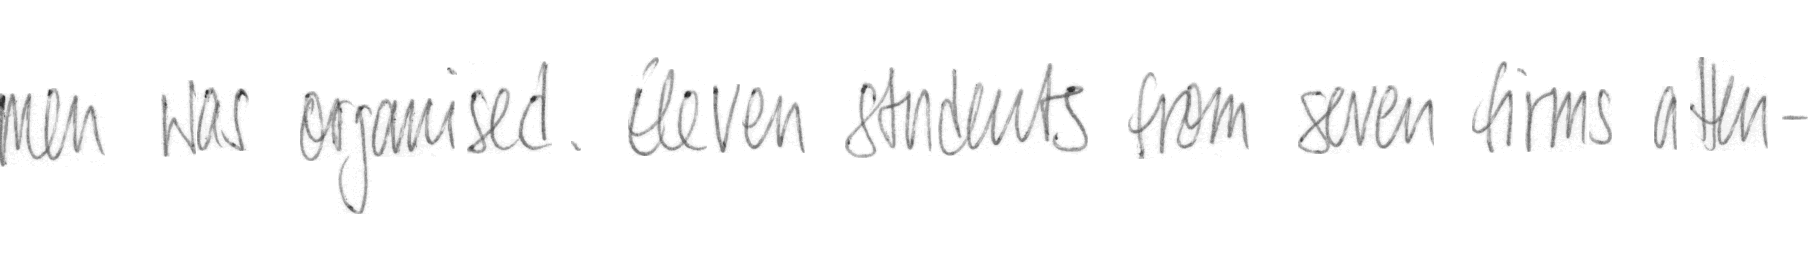 men was organised. Eleven students from seven firms atten-